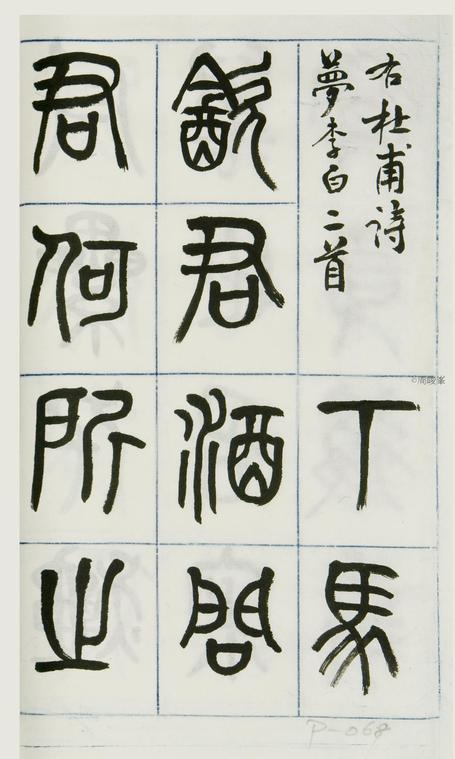 右杜甫詩
夢李白二首
下馬
飲君酒問
君何所之
P-068